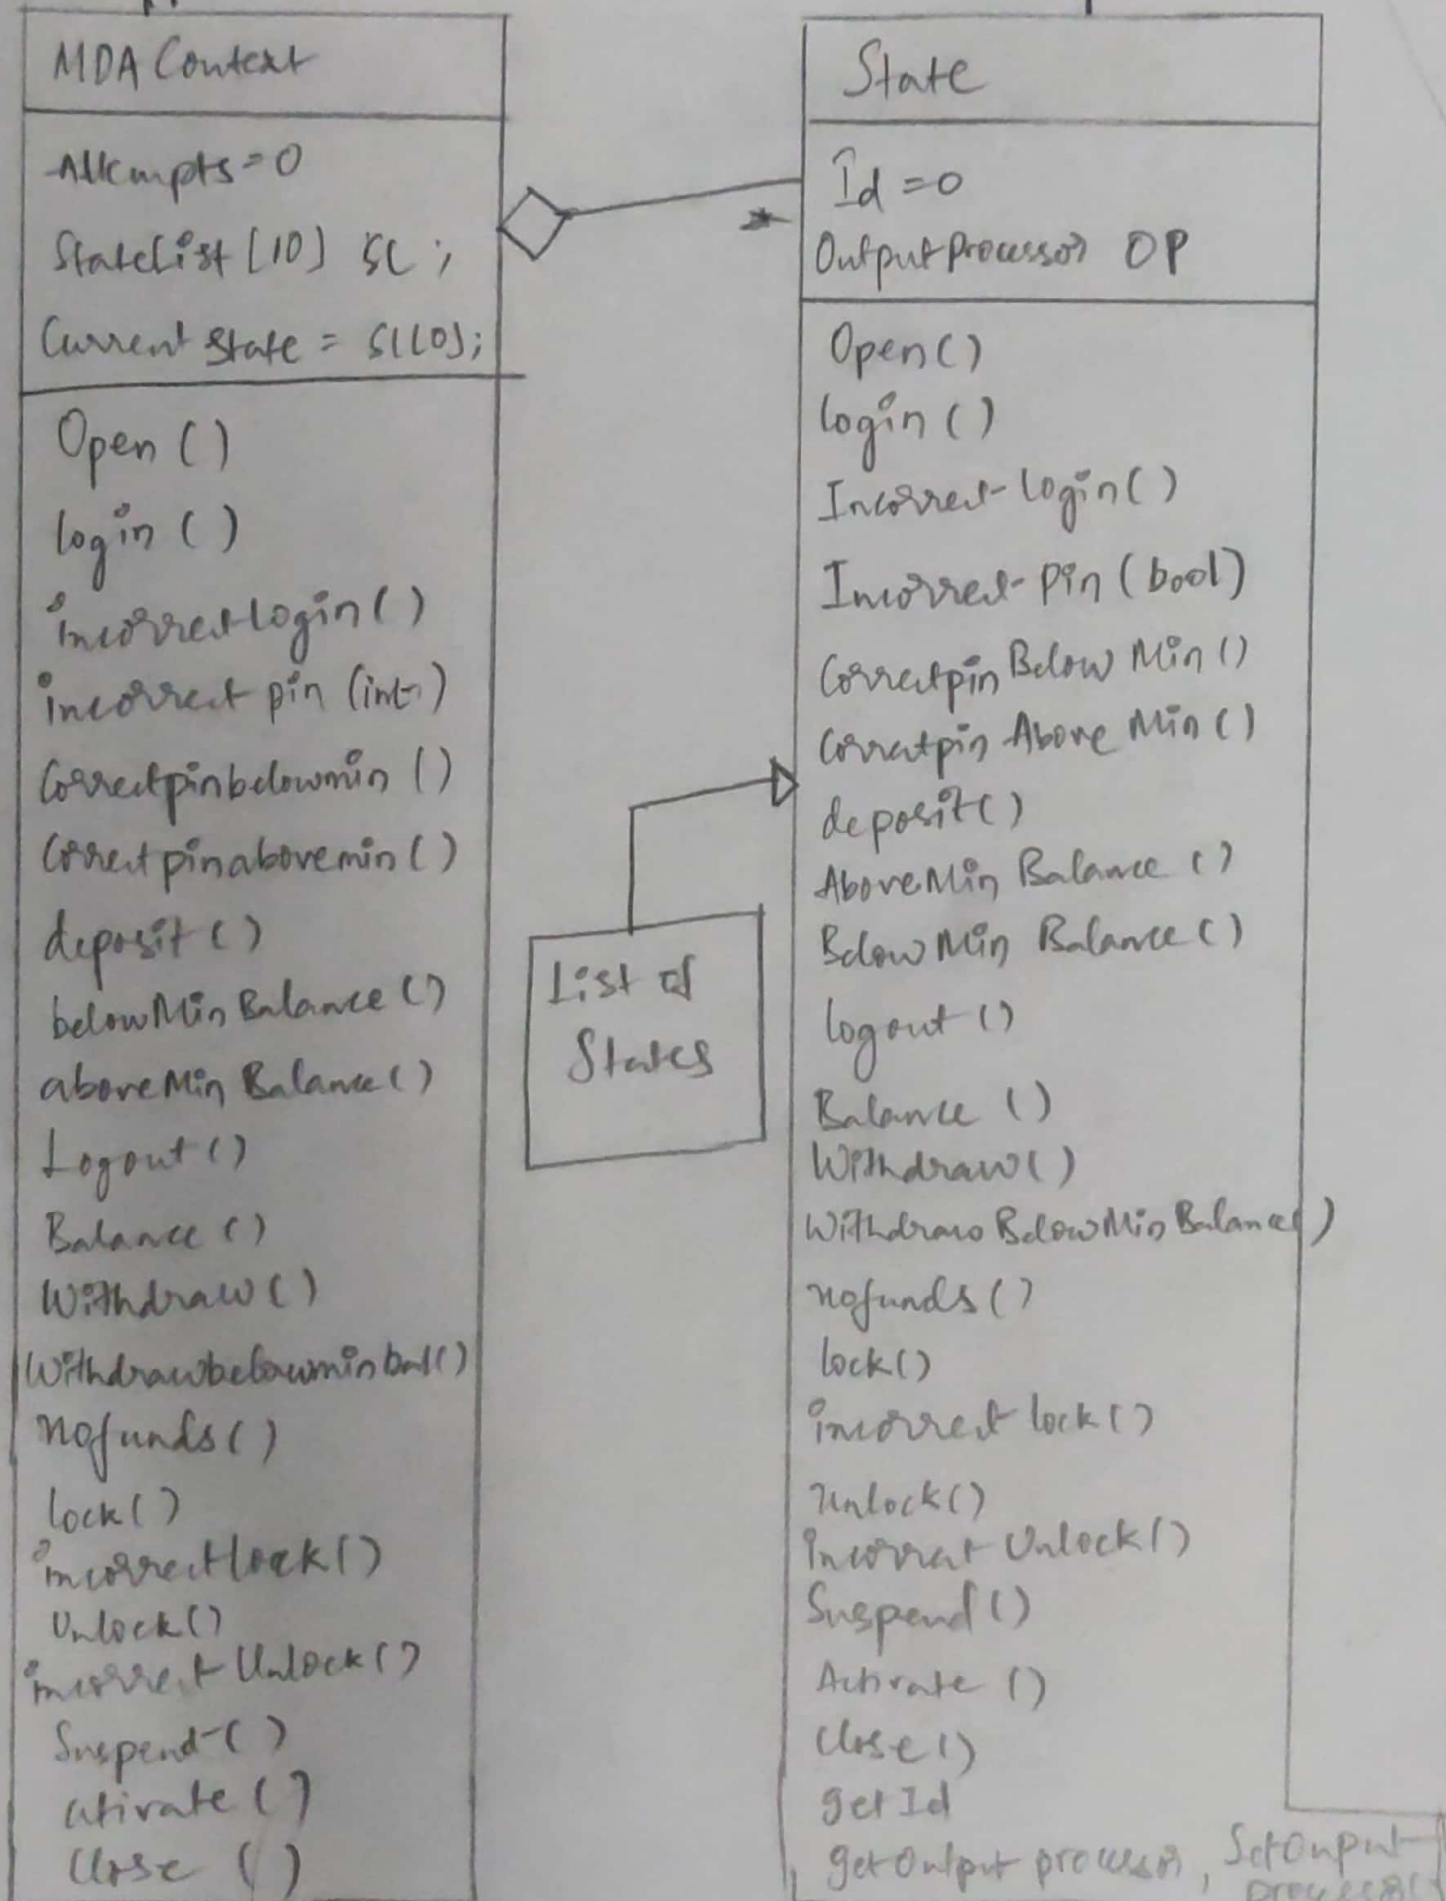 MDA Context
Attempts=0
StateList [10] SL ;
Current State = SL[0];
Open ( )
login ( )
incorrectlogin ( )
incorrect pin (int)
Correctpinbelowmin ( )
Correctpinabovemin ( )
deposit ( )
belowMin Balance ( )
aboveMin Balance ( )
Logout ( )
Balance ( )
Withdraw ( )
Withdrawbelowminbal( )
nofunds ( )
lock ( )
incorrectlock ( )
Unlock ( )
incorrect Unlock ( )
Suspend ( )
ativate ( )
Close ( )
List of
States
State
Id = 0
OutputProcessor OP
Open ( )
login ( )
Incorrect login ( )
Incorrect Pin (bool)
Correctpin Below Min ( )
Correctpin Above Min ( )
deposit ( )
AboveMin Balance ( )
Below Min Balance ( )
logout ( )
Balance ( )
Withdraw ( )
Withdraw BelowMin Balance( )
nofunds ( )
lock ( )
incorrect lock ( )
Unlock ( )
incorrect Unlock ( )
Suspend ( )
Activate ( )
Close ( )
get Id
get Output processor , SetOutput
processor